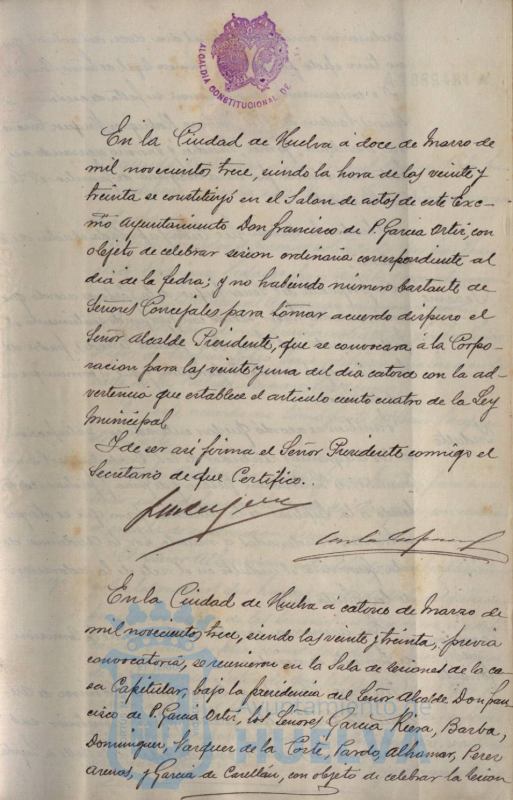 ALCALDÍA CONSTITUCIONAL DE
En la Ciudad de Huelva á doce de Marzo de
mil novecientos trece, siendo la hora de las veinte y
treinta se constituyó en el Salon de actos de este Exc-
mo Ayuntamiento Don Francisco de P. Garcia Ortiz, con
objeto de celebrar sesion ordinaria correspondiente al
dia de la fecha; y no habiendo número bastante de
Señores Concejales para tomar acuerdo dispuso el
Señor Alcalde Presidente, que se convocara á la Corpo-
racion para las veinte y una del dia catorce con la ad-
vertencia que establece el articulo ciento cuatro de la Ley
Municipal
Y de ser asi firma el Señor Presidente conmigo el
Secretario de que Certifico.
En la Ciudad de Huelva á catorce de Marzo de
mil novecientos trece, siendo las veinte y treinta, previa
convocatoria, se reunieron en la Sala de sesiones de la ca-
sa Capitular, bajo la presidencia del Señor Alcalde Don Fran-
cisco de P. Garcia Ortiz, los Señores Garcia Riera, Barba,
Dominguez, Vazquez de la Corte, Pardo, Alhamar, Perez
Arenas, y Garcia de Casellán, con objeto de celebrar la sesion
Ayuntamiento de
HUELVA